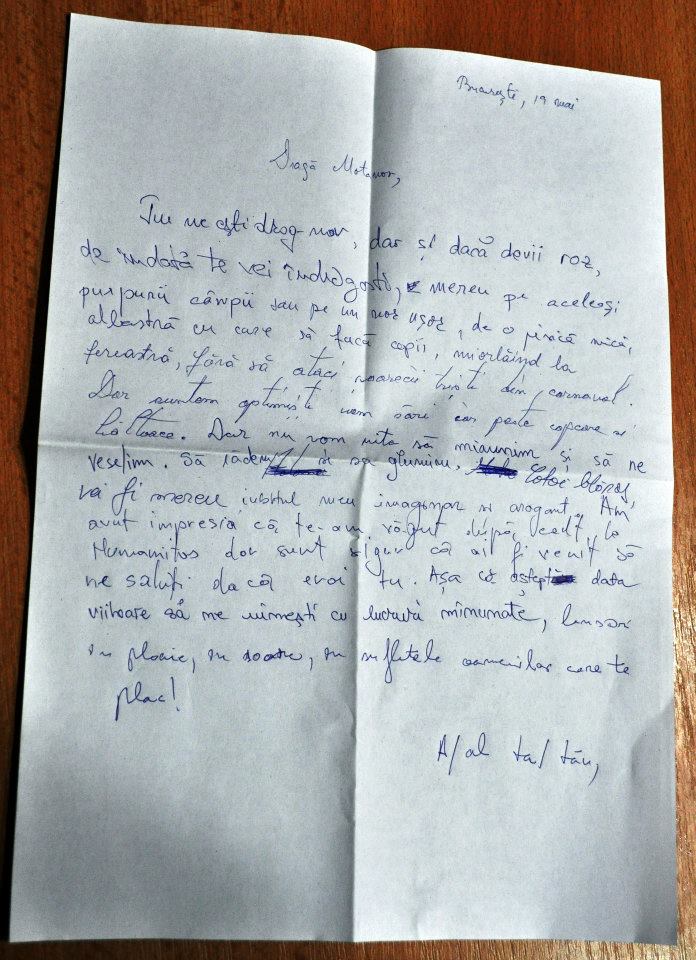 București, 19 mai
Dragă Motanov,
Tu ne ești drag mov, dar și dacă devii roz,
de îndată te vei îndrăgosti, mereu pe aceleași
purpurii câmpii sau pe un nor ușor, de o pisică mică,
albastră cu care să facă copii, miorlăind la
fereastră, fără să ataci șoarecii triști din carnaval.
Dar suntem optimiști vom sări iar peste copcare și
băltoace. Dar nu vom uita să mieunăm și să ne
veselim. Să râdem și să glumim, Cotoi blănos,
vei fi mereu iubitul meu imaginar și arogant. Am
avut impresia că te-am văzut după colț, la
Humanitas dar sunt sigur că ai fi venit să
ne saluți dacă erai tu. Așa că aștept data
viitoare să ne uimești cu lucruri minunate,
în ploaie, în soare, în sufletele oamenilor care te
plac!
A/al ta/tău,